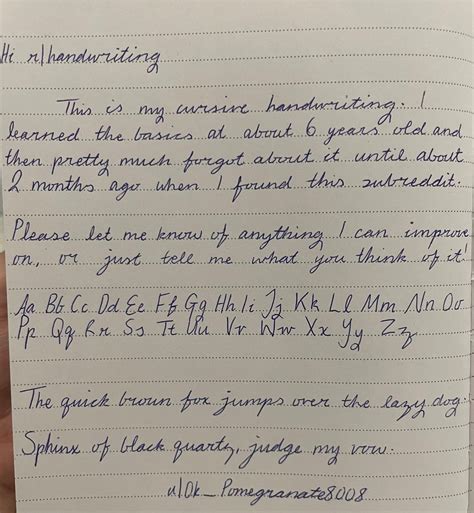 Hi r/handwriting
This is my cursive handwriting. I
learned the basics at about 6 years old and
then pretty much forgot about it until about
2 months ago when I found this subreddit.
Please let me know of anything I can improve
on, or just tell me what you think of it.
Aa Bb Cc Dd Ee Ff Gg Hh Ii Jj Kk Ll Mm Nn Oo
Pp Qq Rr Ss Tt Uu Vv Ww Xx Yy Zz
The quick brown fox jumps over the lazy dog.
Sphinx of black quartz, judge my vow.
u/Ok_Pomegranate8008